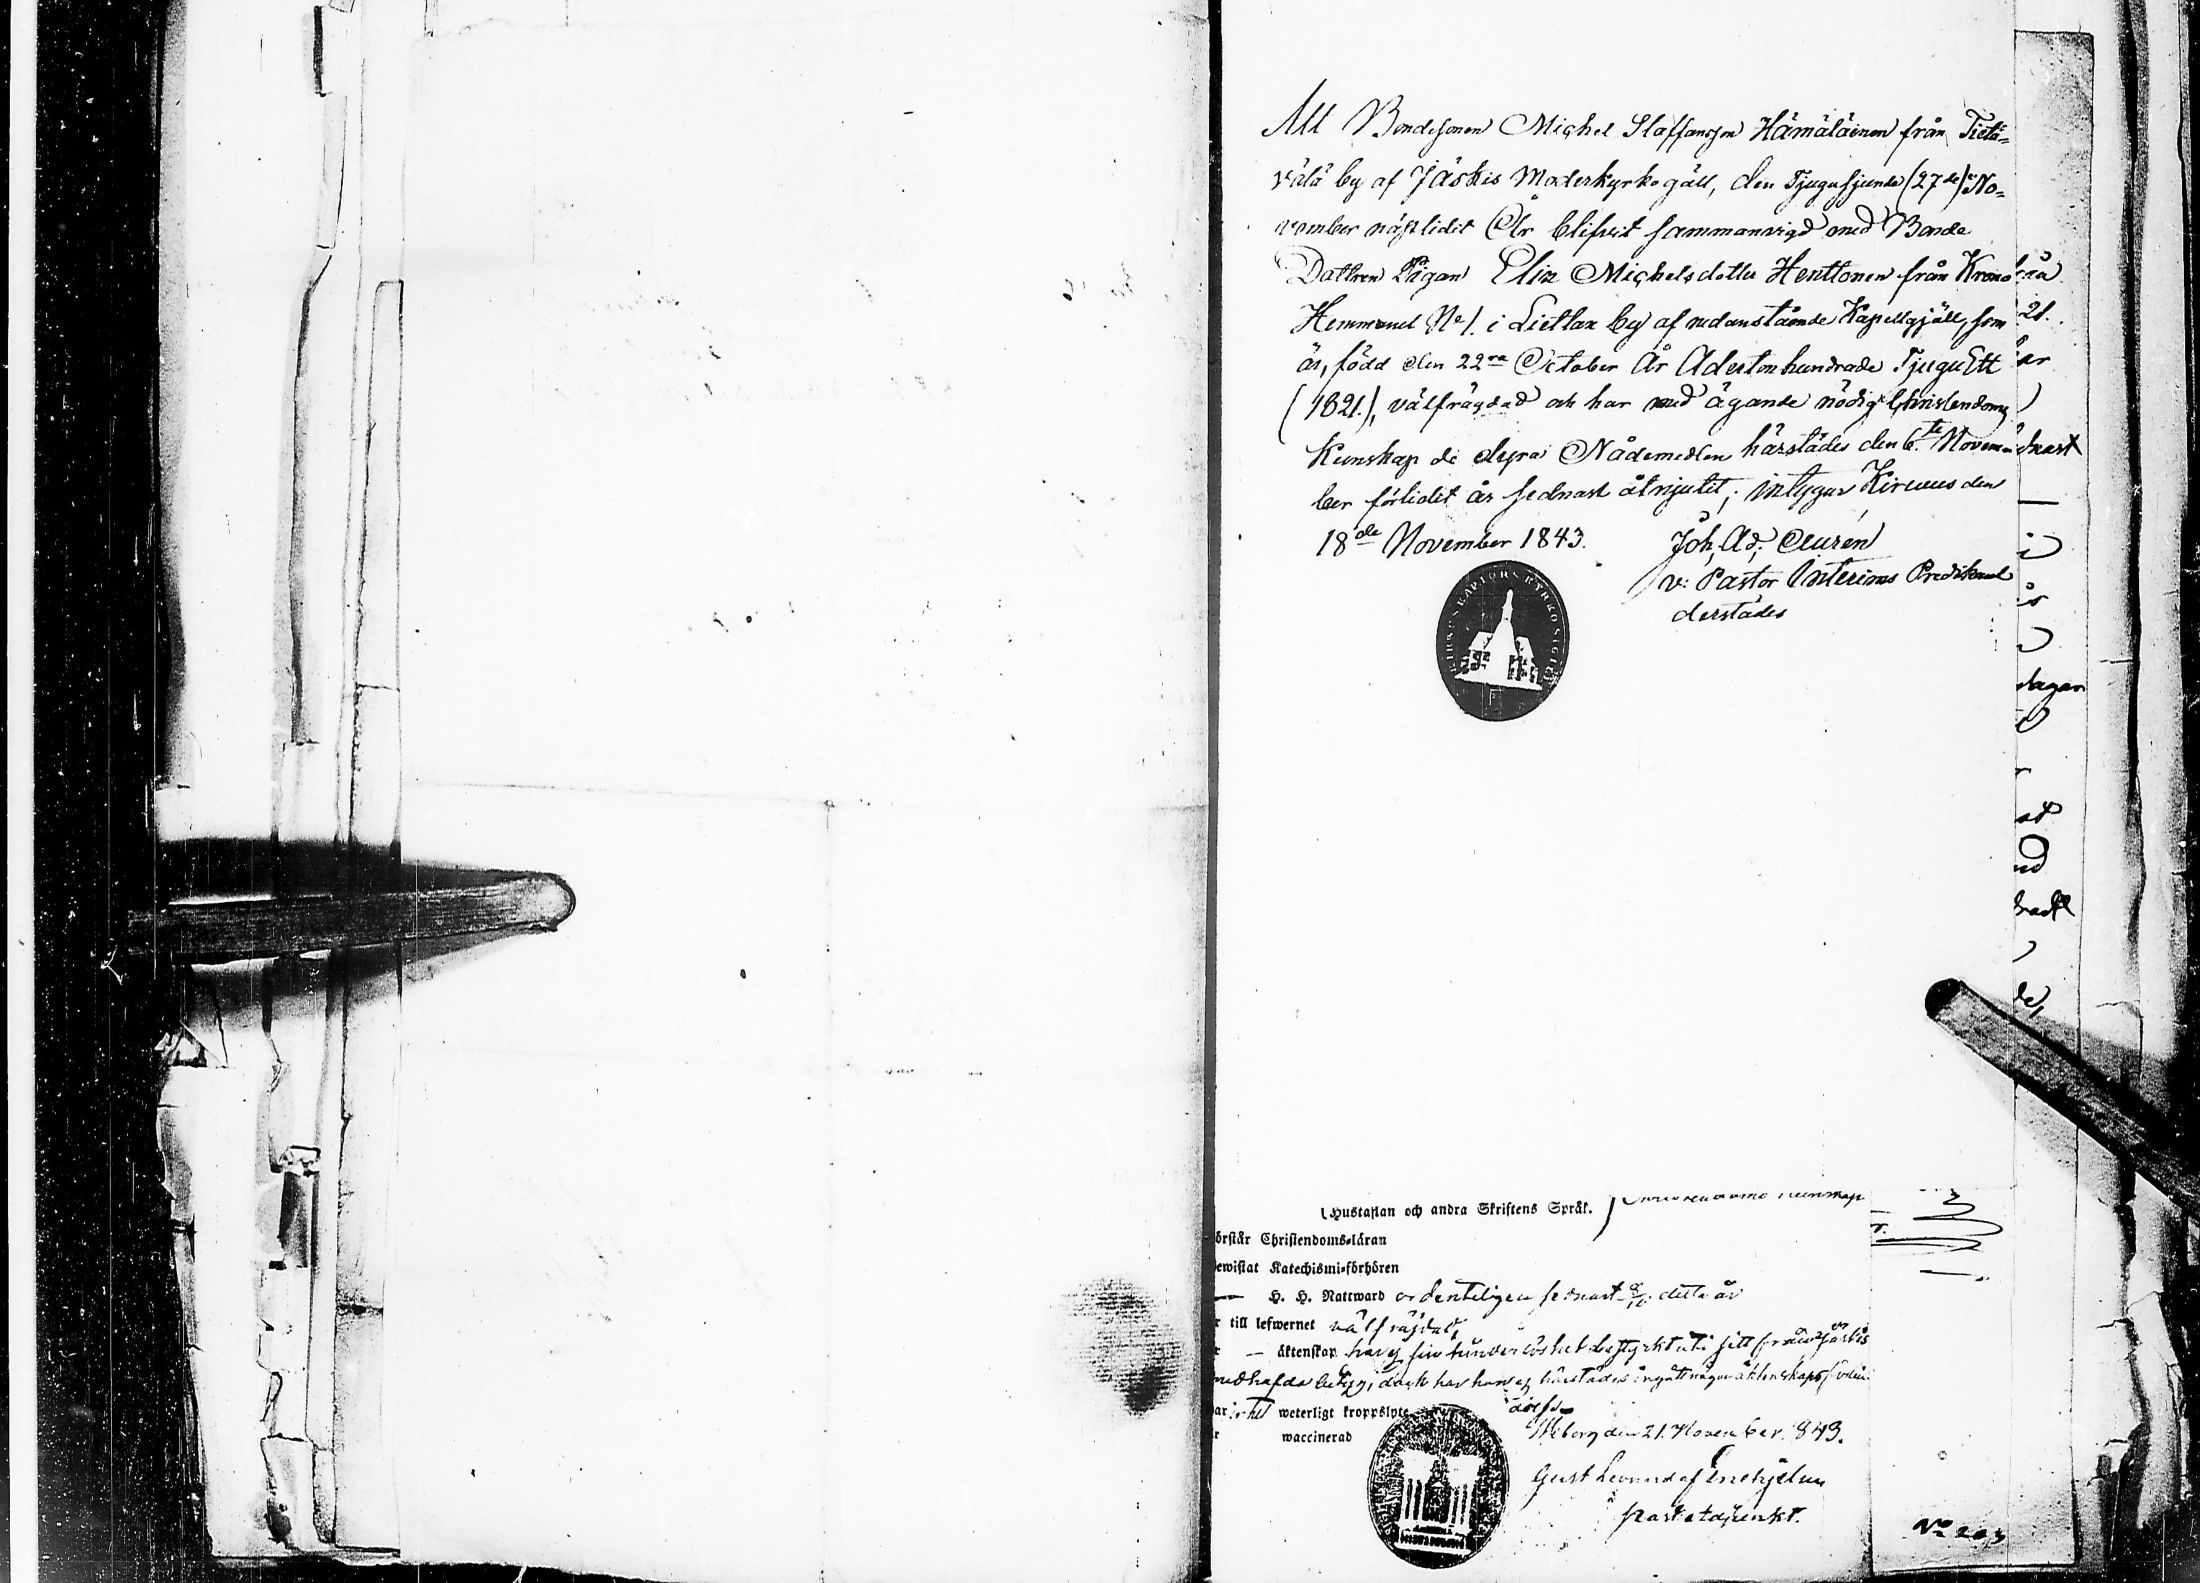 Att Bondesonen Michel Staffansson Hämäläinen från Tietä=
välä by af Jäskis Moderkyrkogäll, den Tjugusjunde (27de) No=
vember nästlidit År blifvit sammanvigd med Bonde
Dottren Pigan Elin Michelsdotter Henttonen från Krono
Hemmanet No 1. i Liettax by af nedanstående Kapellgjäll, som
är, född den 22ra October År Adertonhundrade TjuguEtt
(1821.), välfrägdad och har med ägande nödig Christendoms
Kunskap de dyra Nådemedlen härstädes den 6.te Novem=
ber förlidit år sednast åtnjutit; intygar Kirvus den
18de November 1843. Joh. Ad. Aurén
v. Pastor Interims Predikant
derstädes
21.
ar
dnast
dagen
at
nd
de,
Hustaflan och andra Skriftens Språk.
örstår Christendoms-läran
ewistat Katechismi-förhören
— H. H. Nattward ordenteligen sednast 8/10 detta år
r till lefwernet välfräjdad,
r — äktenskap har ej sin hinderlöshet bestyrkt uti sitt från Jäskis
medhafda betyg, dock har han ej härstädes ingått något äktenskaps
ar intet weterligt kroppslyte
r waccinerad
Wiborg den 21. November 1843.
Gust Leonard af Enehjelm
Pastorsadjunkt.
No 203